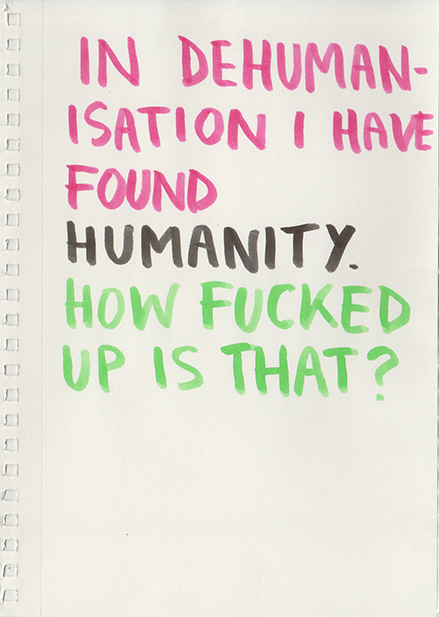 IN DEHUMAN-
ISATION I HAVE
FOUND
HUMANITY.
HOW FUCKED
UP IS THAT?